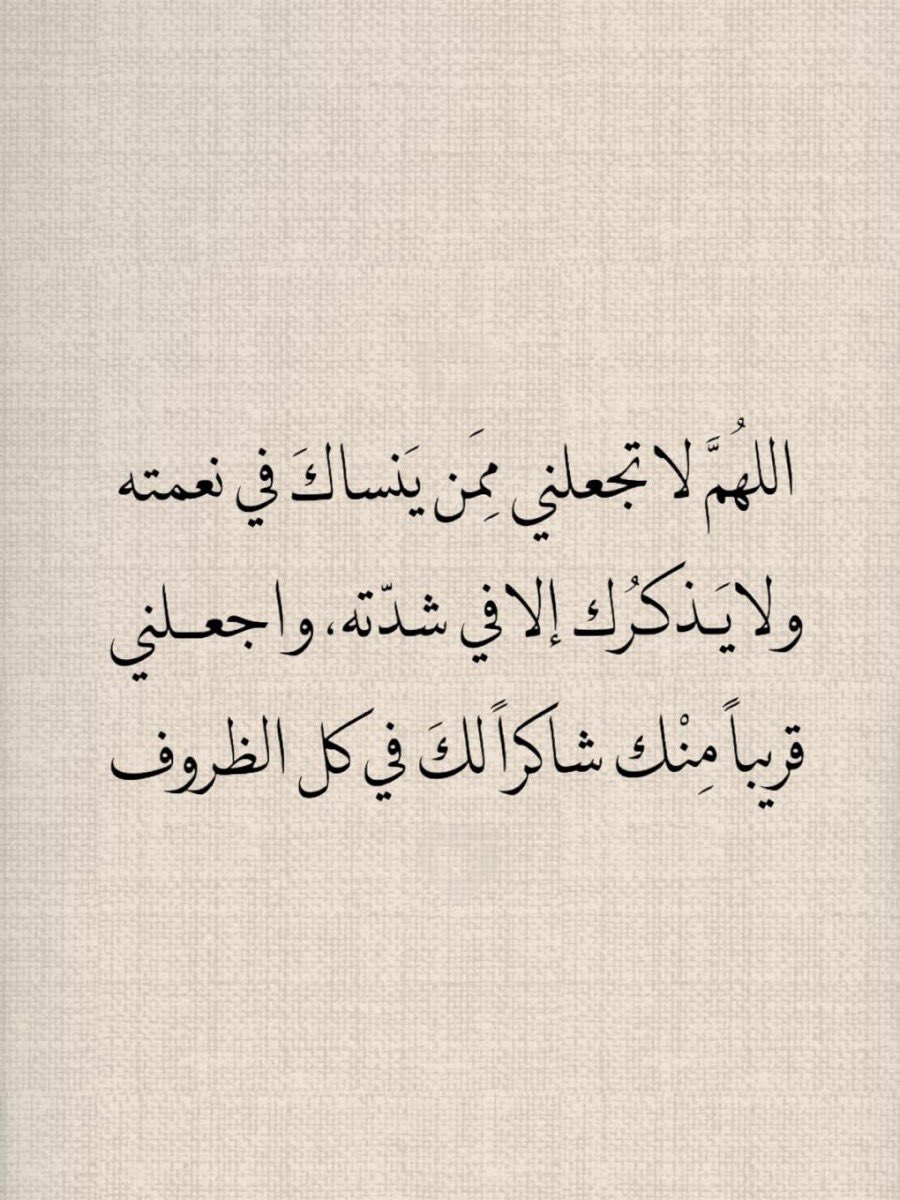 اللهُمَّ لا تجعلني مِمَن يَنساكَ في نعمته
ولا يَـذكـرُك إلا في شـدّته، واجعـلني
قريباً مِنْك شاكراً لكَ في كل الظروف